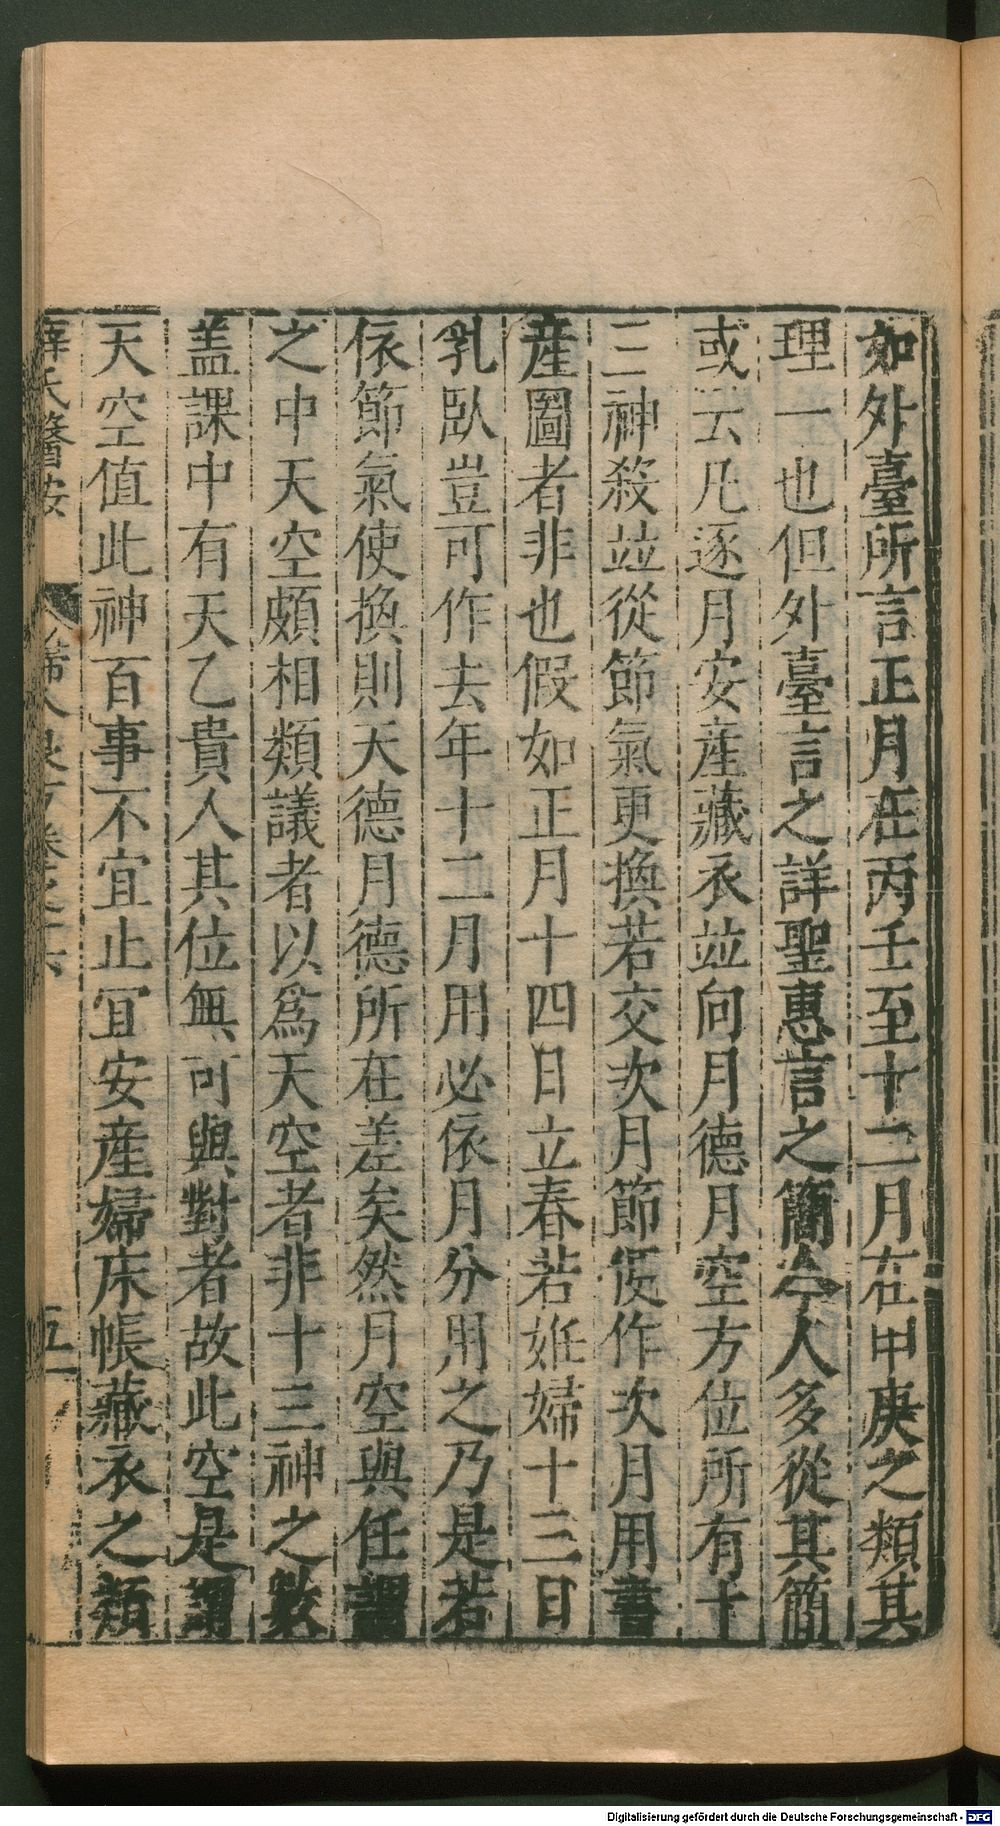 如外臺所言正月在丙壬至十二月在甲庚之類其
理一也但外臺言之詳聖惠言之簡今人多從其簡
或云凡逐月安産藏衣並向月德月空方位所有十
三神殺並從節氣更換若交次月節便作次月用書
産圖者非也假如正月十四日立春若姙婦十三日
乳臥豈可作去年十二月用必依月分用之乃是若
依節氣使換則天德月德所在差矣然月空與任課
之中天空頗相類議者以爲天空者非十三神之數
盖課中有天乙貴人其位無可與對者故此空是謂
天空值此神百事不宜止宜安産婦床帳藏衣之類
薛氏醫按 婦人良方卷之六 五
Digitalisierung gefördert durch die Deutsche Forschungsgemeinschaft - DFG